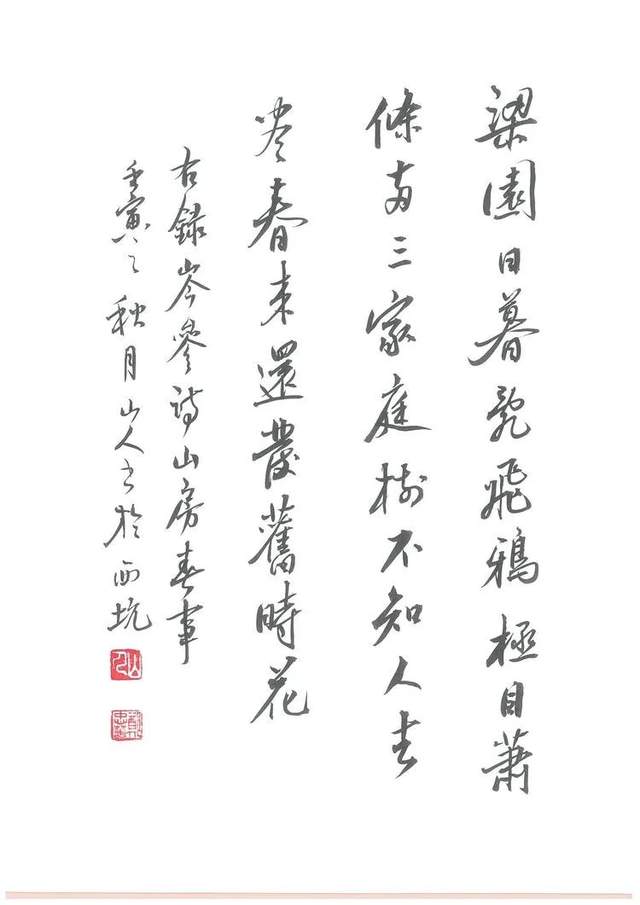 梁園日暮亂飛鴉極目蕭
條兩三家庭樹不知人去
盡春來還發舊時花
右錄岑參詩山房春事
壬寅之秋月山人書於西坑
山人